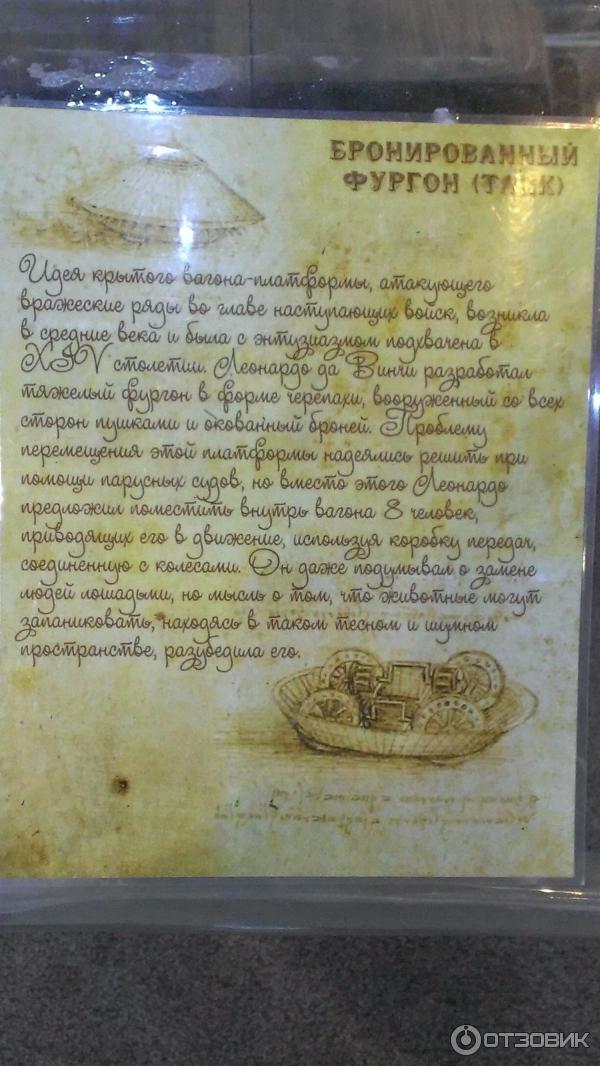 БРОНИРОВАННЫЙ
ФУРГОН (ТАНК)
Идея крытого вагона-платформы, атакующего
вражеские ряды во главе наступающих войск, возникла
в средние века и была с энтузиазмом подхвачена в
XIV столетии. Леонардо да Винчи разработал
тяжелый фургон в форме черепахи, вооруженный со всех
сторон пушками и окованный броней. Проблему
перемещения этой платформы надеялись решить при
помощи парусных судов, но вместо этого Леонардо
предложил поместить внутрь вагона 8 человек,
приводящих его в движение, используя коробку передач,
соединенную с колесами. Он даже подумывал о замене
людей лошадьми, но мысль о том, что животные могут
запаниковать, находясь в таком тесном и шумном
пространстве, разубедила его.
ОТЗОВИК